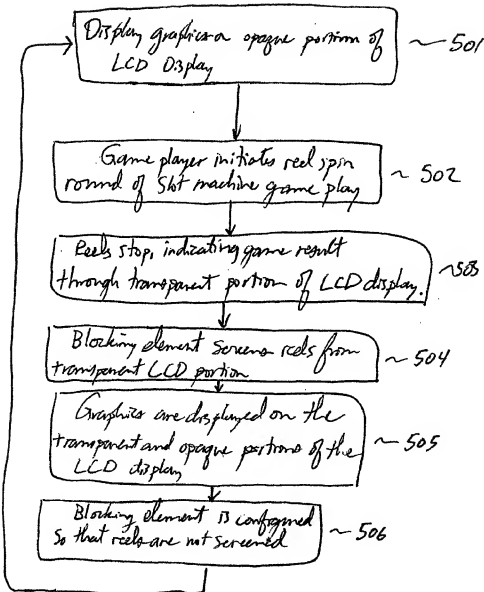 Display graphics on opaque portion of
LCD Display
~ 501
Game player initiates reel spin
round of slot machine game play
~ 502
Reels stop, indicating game result
through transparent portion of LCD display.
~ 503
Blocking element screens reels from
transparent LCD portion
~ 504
Graphics are displayed on the
transparent and opaque portions of the
LCD display
~ 505
Blocking element is configured
so that reels are not screened
~ 506